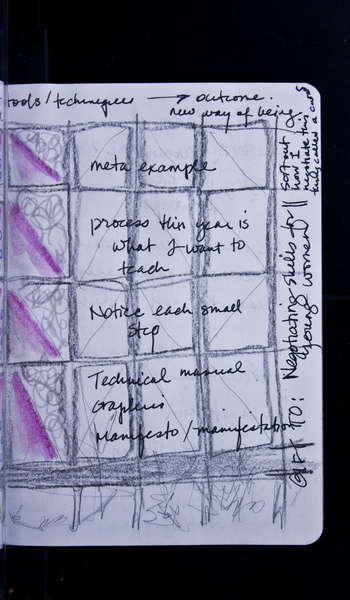 tools/techniques → outcome.
new way of being
meta example
process this year is
what I want to
teach
Notice each small
step
Technical manual
Graphics
Manifesto/manifestation
GIFT TO: Negotiating skills for
young women
Sort out
how I
negotiate this
called a